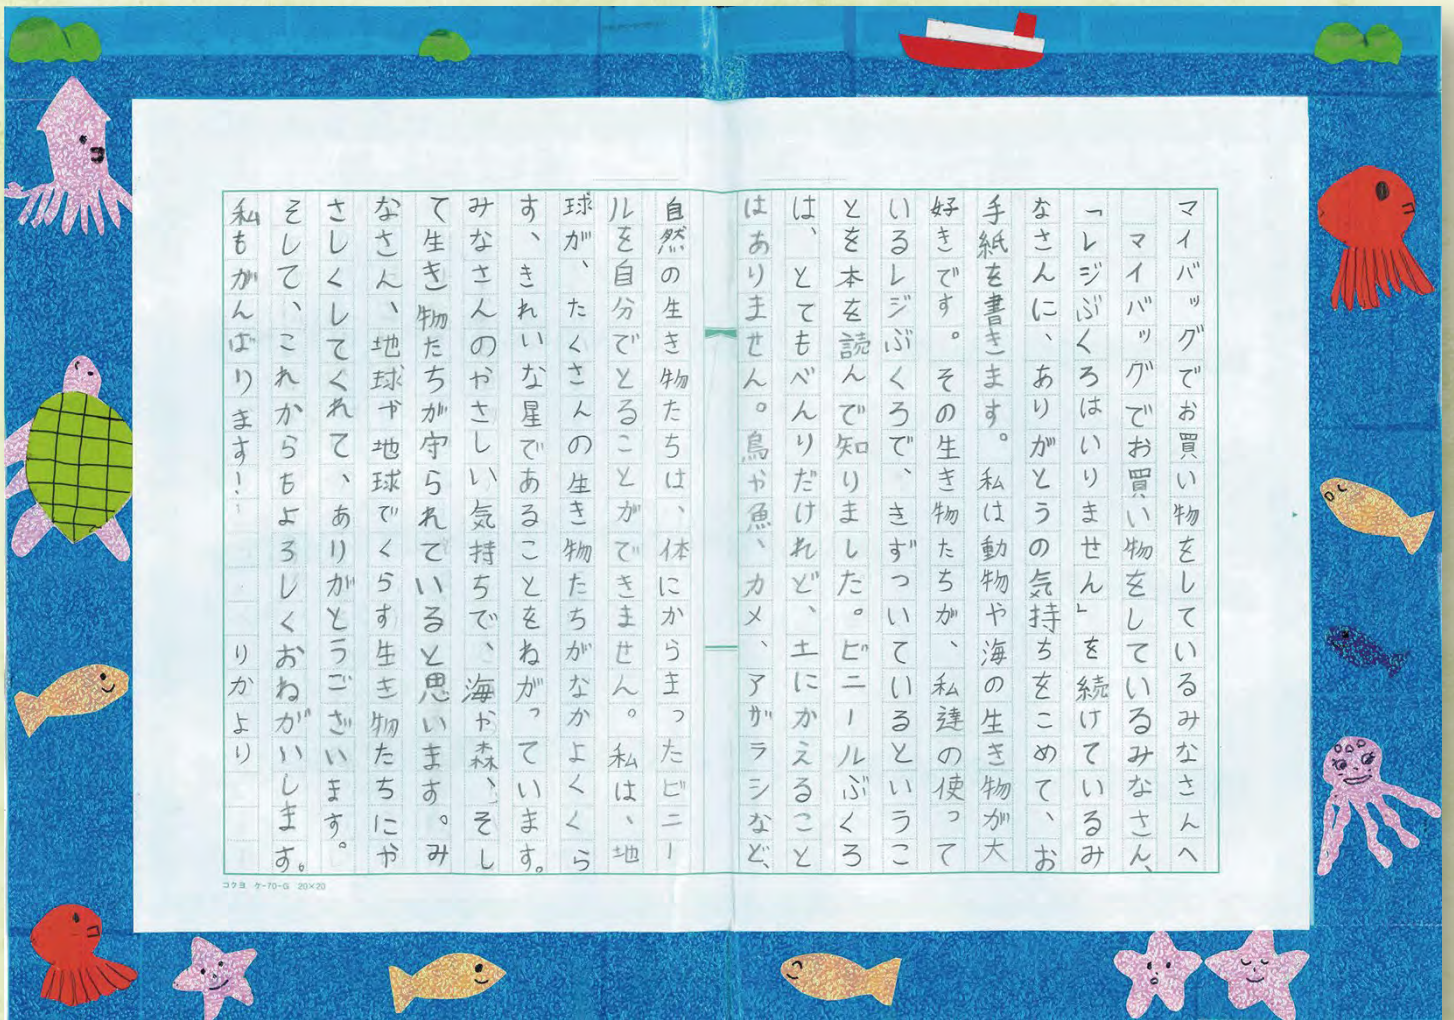 マイバッグでお買い物をしているみなさんへ
マイバッグでお買い物をしているみなさん、
「レジぶくろはいりません」を続けているみ
なさんに、ありがとうの気持ちをこめて、お
手紙を書きます。私は動物や海の生き物が大
好きです。その生き物たちが、私達の使って
いるレジぶくろで、きずついているというこ
とを本を読んで知りました。ビニールぶくろ
は、とてもべんりだけれど、土にかえること
はありません。鳥や魚、カメ、アザラシなど、
自然の生き物たちは、体にからまったビニー
ルを自分でとることができません。私は、地
球が、たくさんの生き物たちがなかよくくら
す、きれいな星であることをねがっています。
みなさんのやさしい気持ちで、海や森、そし
て生き物たちが守られていると思います。み
なさん、地球や地球でくらす生き物たちにや
さしくしてくれて、ありがとうございます。
そして、これからもよろしくおねがいします。
私もがんばります! りかより
コクヨ ケ-70-G 20×20